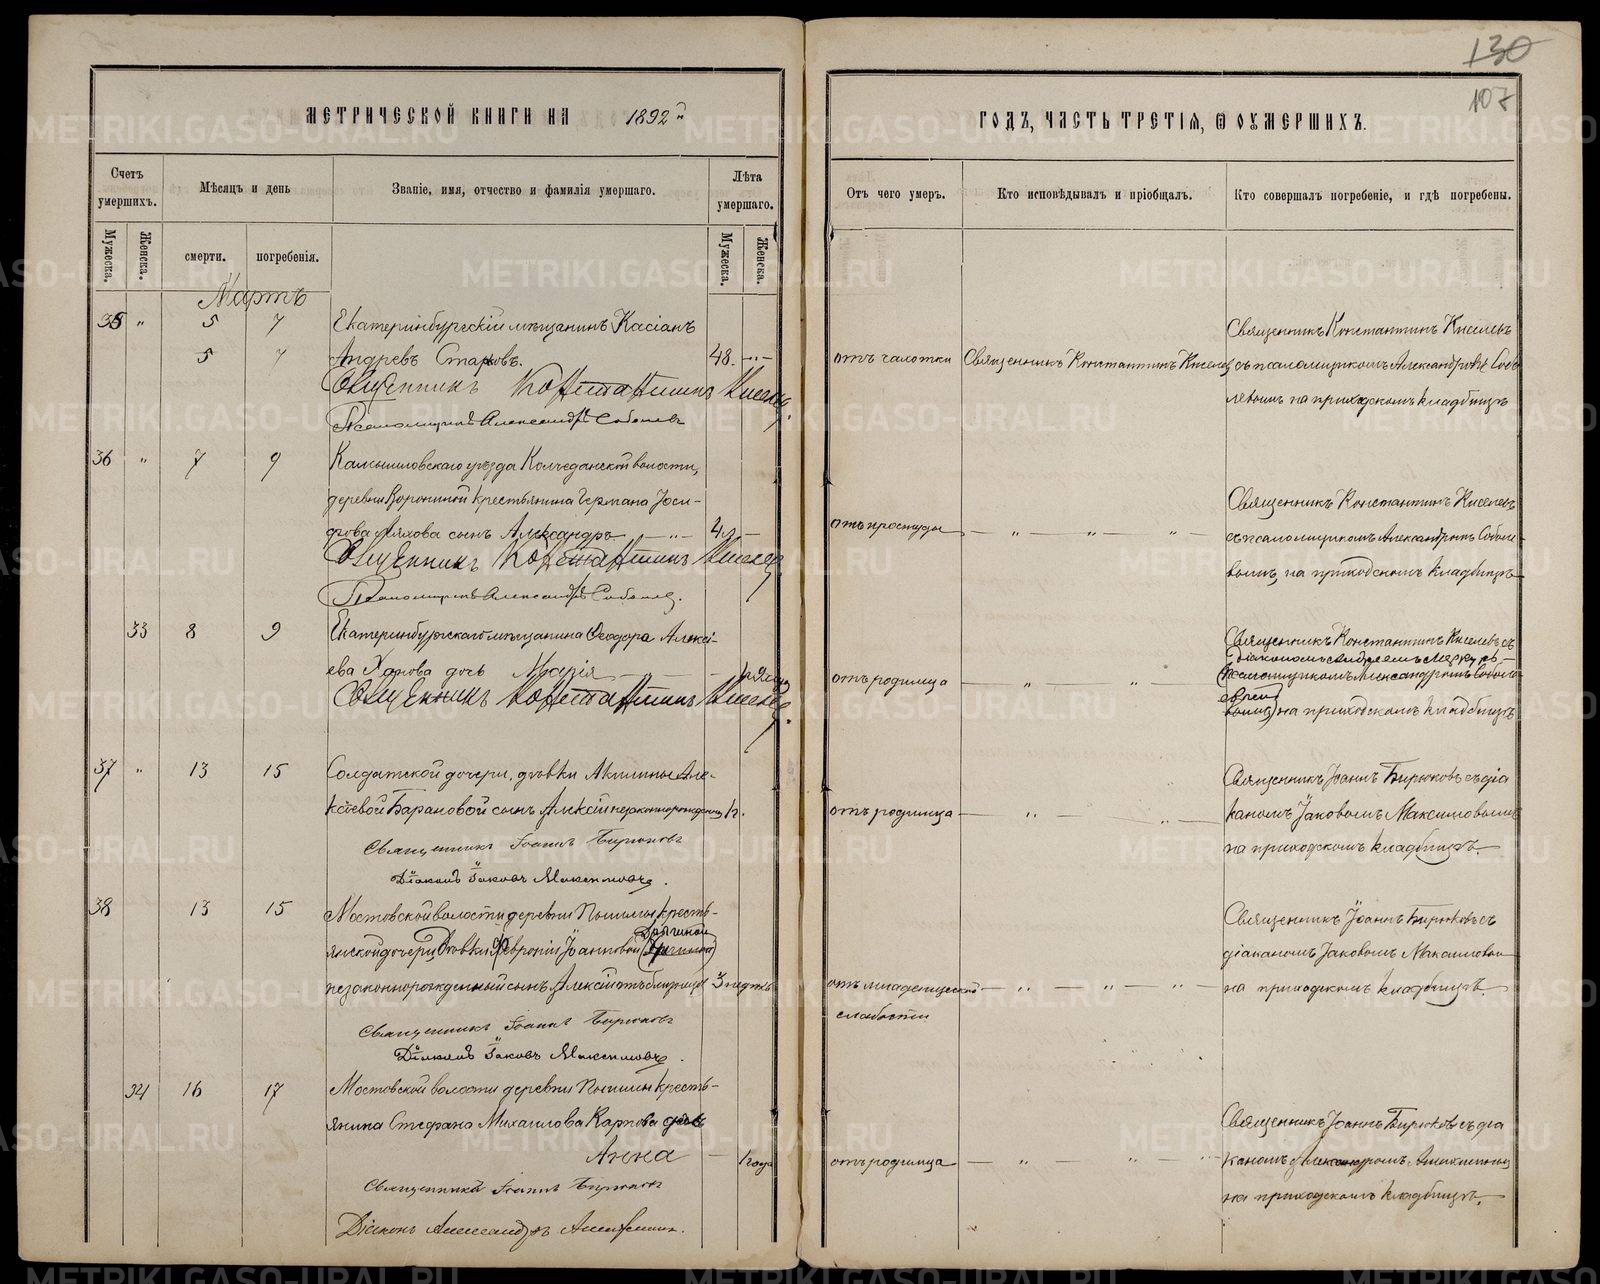 130
107
МЕТРИЧЕСКОЙ КНИГИ НА 1892й
ГОДЪ, ЧАСТЬ ТРЕТІЯ, Ѿ ОУМЕРШИХЪ.
Счетъ умершихъ.
Мѣсяцъ и день
Званіе, имя, отчество и фамилія умершаго.
Лѣта умершаго.
Отъ чего умеръ.
Кто исповѣдывалъ и пріобщалъ.
Кто совершалъ погребеніе, и гдѣ погребены.
Мужеска.
Женска.
смерти.
погребенія.
Мужеска.
Женска.
Мартъ
35 " 5 7 Екатеринбургскій мѣщанинъ Касіанъ
5 7 Андреевъ Старковъ. 48. -"-
отъ чахотки
Священникъ Константинъ Киселевъ
Священникъ Константинъ Киселевъ
съ псаломщикомъ Александромъ Собо
левымъ на приходскомъ кладбищѣ
Священникъ Константинъ Киселевъ.
Псаломщикъ Александръ Соболевъ
36 " 7 9 Камышловскаго уѣзда Колчеданской волости,
деревни Ворониной крестьянина Германа Іоси-
фова Ляхова сынъ Александръ — " —
отъ простуды — " — " — " —
Священникъ Константинъ Киселевъ
съ псаломщикомъ Александромъ Соболе-
вымъ, на приходскомъ кладбищѣ
Священникъ Константинъ Киселевъ
Псаломщикъ Александръ Соболевъ.
33 8 9 Екатеринбургскаго мѣщанина Ѳеодора Алексі-
ева дочь Марія
отъ родимца — " — " —
Священникъ Константинъ Киселевъ съ
діакономъ Андреемъ
псаломщикомъ Александромъ Соболе
вымъ) на приходскомъ кладбищѣ
Священникъ Константинъ Киселевъ.
37 " 13 15 Солдатской дочери, дѣвки Акилины Але-
ксіевой Барановой сынъ Алексій незаконнорожденный 1 г.
отъ родимца — " — " —
Священникъ Іоаннъ Бирюковъ съ діа
кономъ Іаковомъ Максимовымъ
на приходскомъ кладбищѣ.
Священникъ Іоаннъ Бирюковъ
Діаконъ Іаковъ Максимовъ.
38 13 15 Мостовской волости деревни Пышмы кресть-
янской дочери, дѣвки Февроніи Іоанновой
незаконнорожденный сынъ Алексій отъ близнецъ 3 недѣль
отъ младенческой — " — " — " —
слабости
Священникъ Іоаннъ Бирюковъ съ
діакономъ Іаковомъ Максимовым
на приходскомъ кладбищѣ.
Священникъ Іоаннъ Бирюковъ
Діаконъ Іаковъ Максимовъ.
34 16 17 Мостовской волости деревни Пышмы кресть-
янина Стефана Михаилова Карпова дочь
Анна — 1 года
отъ родимца — " — " — "
Священникъ Іоаннъ Бирюковъ съ діа
кономъ Александромъ
на приходскомъ кладбищѣ.
Священникъ Іоаннъ Бирюковъ
Діаконъ Александръ
METRIKI.GASO-URAL.RU